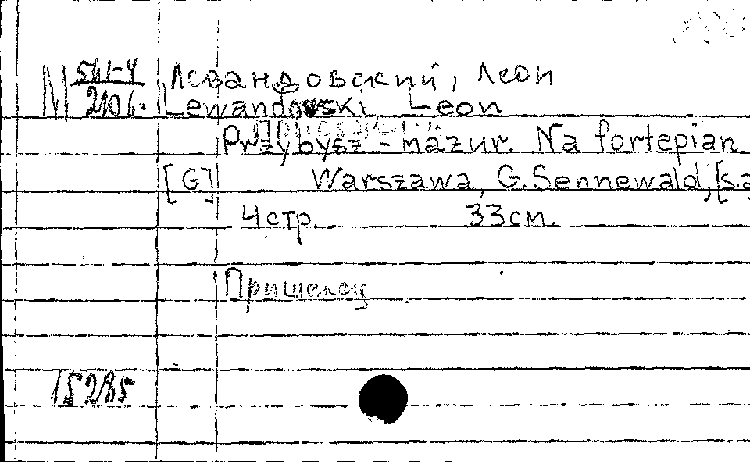 М 541-4 Левандовский, Леон
2106. Lewandowski Leon
Przybysz - mazur. Na fortepian.
[G] Warszawa, G. Sennewald, [s.a
4 стр. 33 см.
Пришелец
15285